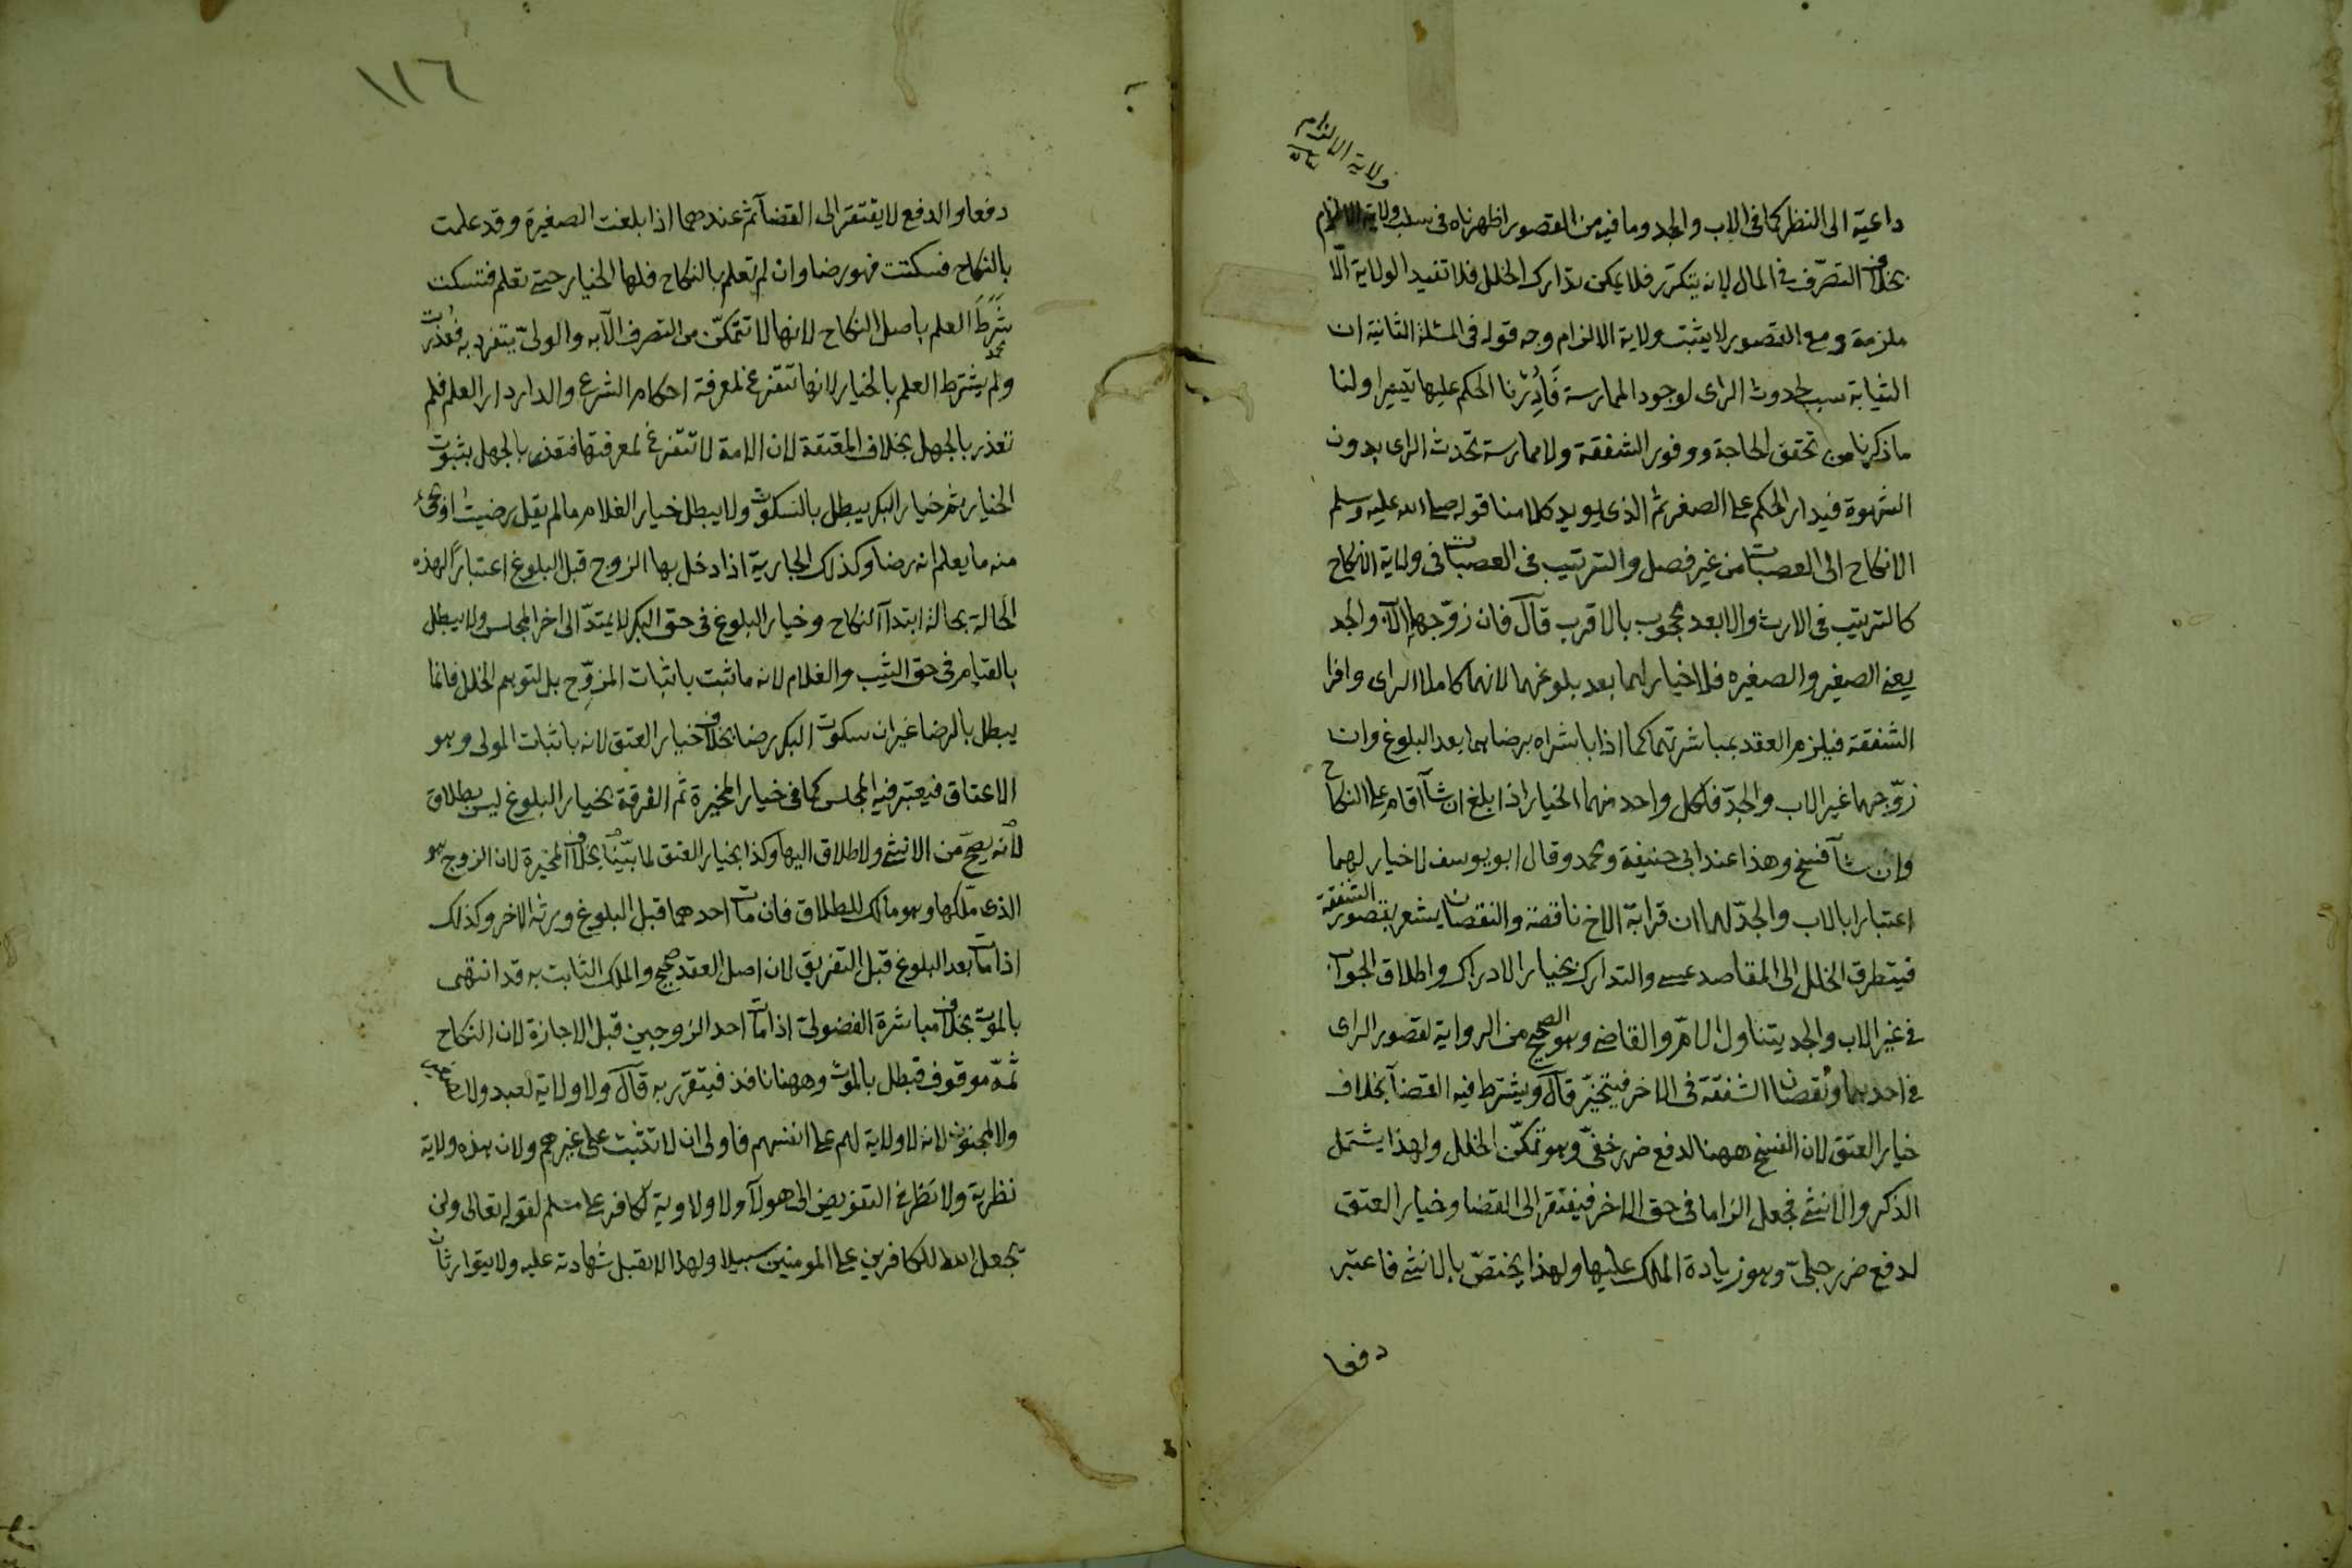 ولاية الالزام
داعية الى النظر كما فى الاب والجد وما فيه من القصور اظهرناه فى سلب ولاية الالزام
بخلاف التصرّف فى المال لانه يتكرّر فلا يمكن تدارك الخلل فلا تفيد الولاية الّا
ملزمة ومع القصور لا يثبت ولاية الالزام وجه قوله فى المسئلة الثانية ان
الثيابة سبب لحدوث الراى لوجود الممارسة فَاَدَرْنا الحكم عليها تيسيرا ولنا
ما ذكرنا من تحقق الحاجة ووفور الشفقة ولا ممارسة تحدث الراى بدون
الشهوة فيدار الحكم على الصغر ثم الذى يويد كلامنا قوله صلى الله عليه وسلم
الانكاح الى العصبات من غير فصل والترتيب فى العصبات فى ولاية الانكاح
كالترتيب فى الارث والابعد محجوب بالاقرب قآل فان زوّجهما الاب والجد
يعنى الصغير والصغيره فلا خيار لهما بعد بلوغهما لانهما كاملا الراى وافرا
الشفقة فيلزم العقد بمباشرتهما كما اذا باشراه برضاهما بعد البلوغ وان
زوّجهما غير الاب والجدّ فلكل واحد منهما الخيار اذا بلغ ان شآ اقام على النكاح
وان شآ فسخ وهذا عند ابى حنيفة ومحمد وقال ابو يوسف لا خيار لهما
اعتبارا بالاب والجدّ لهما ان قرابة الاخ ناقصة والنقصان يشعر بقصور الشفقة
فيتطرق الخلل الى المقاصد عسى والتدارك بخيار الادراك واطلاق الجواب
فى غير الاب والجد يتناول الامّ والقاضى وهو الصحيح من الرواية لقصور الراى
فى احدهما ونقصان الشفقة فى الاخر فيتخيّر قآل ويشترط فيه القضآ بخلاف
خيار العتق لان الفسخ ههنا لدفع ضرر خفىّ وهو تمكّن الخلل ولهذا يشتمل
الذكر والانثى فجعل الزاما فى حق الاخر فيفتقر الى القضا وخيار العتق
لدفع ضرر جلىّ وهو زيادة الملك عليها ولهذا يختصّ بالانثى فاعتبر
دفعا
١١٦
دفعا والدفع لا يفتقر الى القضآ ثم عندهما اذا بلغت الصغيرة وقد علمت
بالنكاح فسكتت فهو رضا وان لم تعلم بالنكاح فلها الخيار حتى تعلم فتسكت
شَرَطَ العلم باصل النكاح لانها لا تتمكّن من التصرف الّا به والولىّ يتفرد به فعُذرت
محمد
ولم يشترط العلم بالخيار لانها تتفرغ لمعرفة احكام الشرع والدار دار العلم فلم
تعذر بالجهل بخلاف المعتقة لان الامة لا تتفرغ لمعرفتها فتعذر بالجهل بثبوت
الخيار ثم خيار البكر يبطل بالسكوت ولا يبطل خيار الغلام ما لم يقل رضيت او يجئ
منه ما يعلم انه رضا وكذلك الجارية اذا دخل بها الزوج قبل البلوغ اعتباراً لهذه
الحالة بحالة ابتدآ النكاح وخيار البلوغ فى حق البكر لا يمتدّ الى اخر المجلس ولا يبطل
بالقيام فى حق الثيب والغلام لانه ما ثبت باثبات المزوّج بل لتوهم الخلل فانما
يبطل بالرضا غير ان سكوت البكر رضا بخلاف خيار العتق لانه باثبات المولى وهو
الاعتاق فيعتبر فيه المجلس كما فى خيار المخيرة ثم الفرقة بخيار البلوغ ليس بطلاق
لانه يصحّ من الانثى ولا طلاق اليها وكذا بخيار العتق لما بيّنا بخلاف المخيرة لان الزوج هو
الذى ملّكها وهو مالك للطلاق فان مات احدهما قبل البلوغ ورثه الاخر وكذلك
اذا مات بعد البلوغ قبل التفريق لان اصل العقد صحيح والملك الثابت به قد انتهى
بالموت بخلاف مباشرة الفضولىّ اذا مات احد الزوجين قبل الاجازة لان النكاح
ثمّه موقوف فبطل بالموت وههنا نافذ فيتقرر به قآل ولا ولاية لعبد ولا صبى
ولا مجنون لانه لا ولاية لهم على انفسهم فاولى ان لا تثبت على غيرهم ولان هذه ولاية
نظرية ولا نظر فى التفويض الى هولآ ولا ولاوية لكافر على مسلم لقوله تعالى ولن
يجعل الله للكافرين على المومنين سبيلا ولهذا لا يقبل شهادته عليه ولا يتوارثان